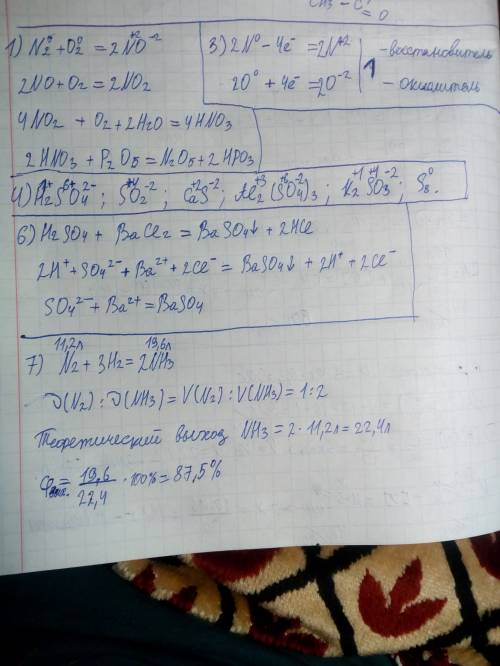 CH₃ - C
= O
1) N₂⁰ + O₂⁰ = 2N⁺²O⁻²
2NO + O₂ = 2NO₂
4NO₂ + O₂ + 2H₂O = 4HNO₃
2HNO₃ + P₂O₅ = N₂O₅ + 2HPO₃
3) 2N⁰ - 4e⁻ = 2N⁺² | 1 - восстановитель
2O⁰ + 4e⁻ = 2O⁻² | - окислитель
4) H₂¹⁺S⁶⁺O₄²⁻; S⁺⁴O₂⁻²; Ca⁺²S⁻²; Al₂⁺³(S⁺⁶O₄⁻²)₃; K₂⁺¹S⁺⁴O₃⁻²; S₈⁰
6) H₂SO₄ + BaCl₂ = BaSO₄↓ + 2HCl
2H⁺ + SO₄²⁻ + Ba²⁺ + 2Cl⁻ = BaSO₄↓ + 2H⁺ + 2Cl⁻
SO₄²⁻ + Ba²⁺ = BaSO₄
11,2л 19,6л
7) N₂ + 3H₂ = 2NH₃
υ(N₂) : υ(NH₃) = V(N₂) : V(NH₃) = 1:2
Теоретический выход NH₃ = 2 · 11,2л = 22,4л
φ = 19,6/22,4 · 100% = 87,5%